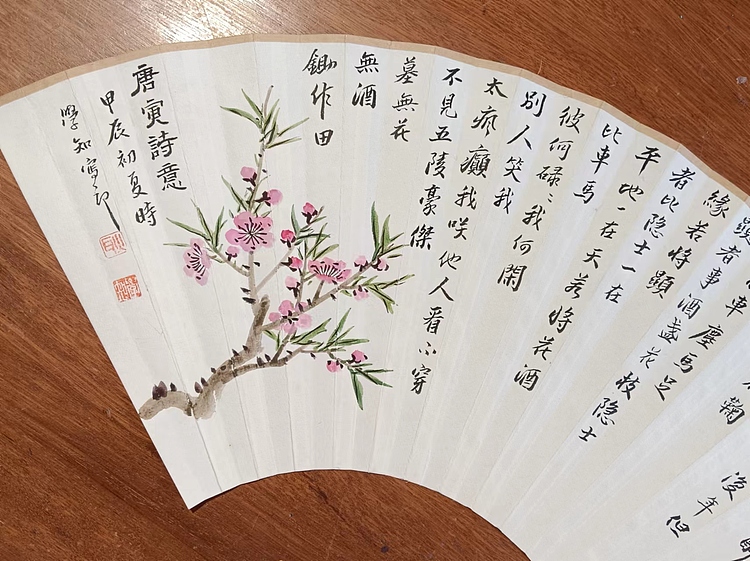 復年但
鞠
車塵馬足
顯者事酒盞花枝隐士
緣若將顯
者比隐士一在
平地一在天若將花酒
比車馬
彼何碌〻我何閑
別人笑我
太瘋癲我咲他人看不穿
不見五陵豪傑
墓無花
無酒
鋤作田
唐寅詩意
甲辰初夏時
學知寫